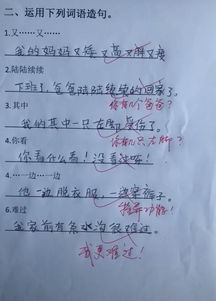 二、运用下列词语造句。
1.又……又……
我的妈妈又矮又高又胖又瘦
2.陆陆续续
下班了,爸爸陆陆续续的回家了。
你有几个爸爸?
3.其中
我的其中一只左脚受伤了。
你有几只左脚?
4.你看
你看什么看!没看过啊!
4.…一边…一边
他一边脱衣服,一边穿裤子。
6.难过
我家前有条水沟很难过。
我更难过!